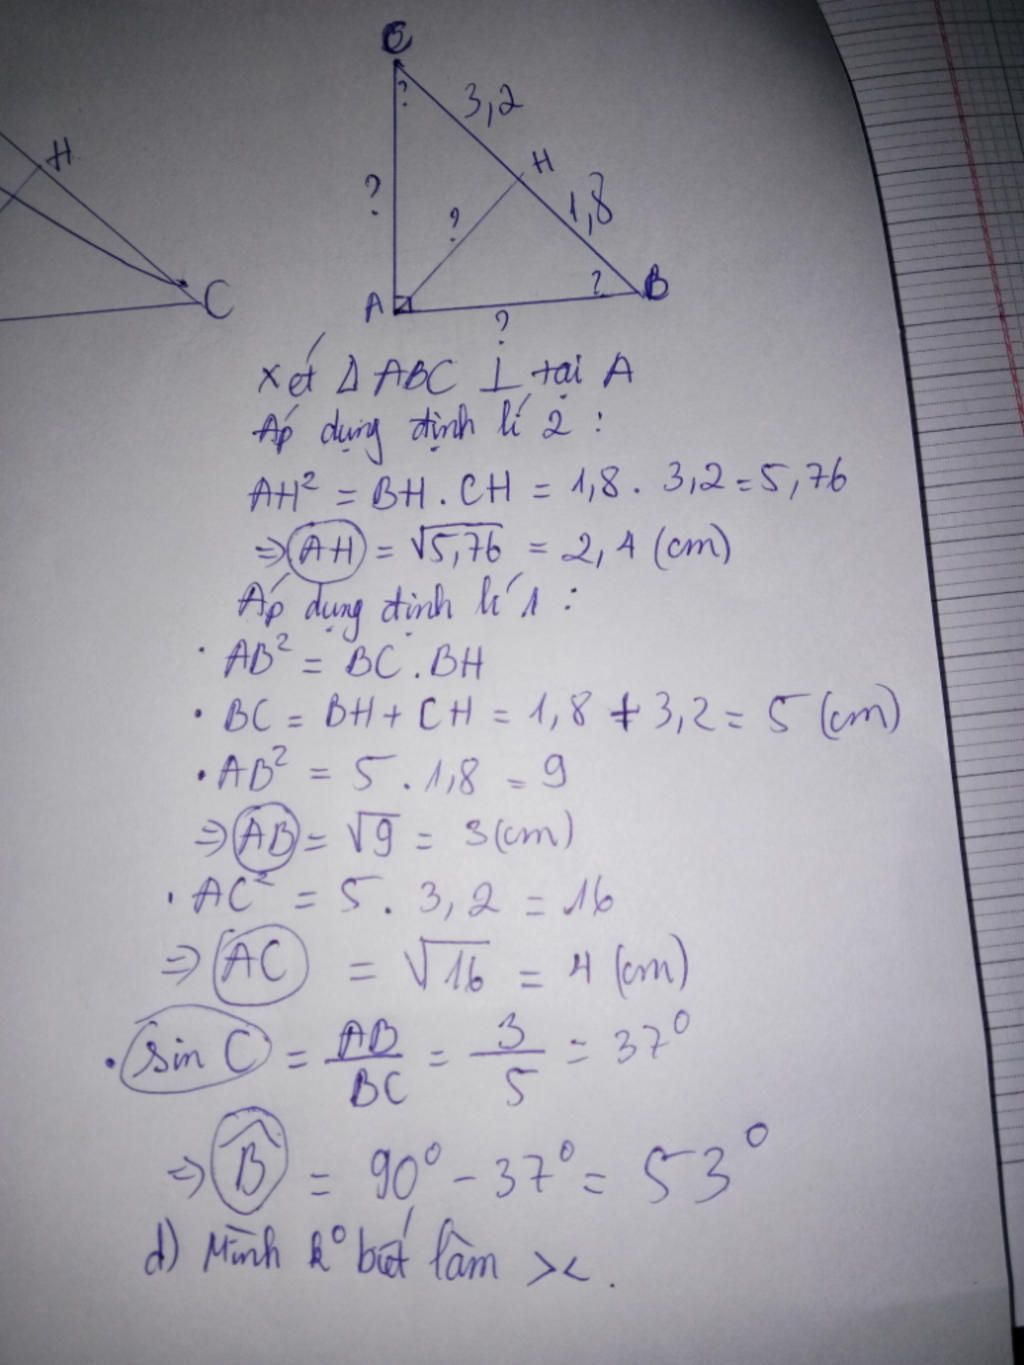 C
?
3,2
H
H
?
1,8
?
?
B
A
C
?
Xét Δ ABC ⊥ tại A
Áp dụng định lí 2 :
AH² = BH . CH = 1,8 . 3,2 = 5,76
⇒ AH = √5,76 = 2,4 (cm)
Áp dụng định lí 1 :
· AB² = BC . BH
· BC = BH + CH = 1,8 + 3,2 = 5 (cm)
· AB² = 5 . 1,8 = 9
⇒ AB = √9 = 3 (cm)
· AC² = 5 . 3,2 = 16
⇒ AC = √16 = 4 (cm)
· sin C = AB/BC = 3/5 = 37°
⇒ B̂ = 90° - 37° = 53°
d) Mình k° biết làm >< .